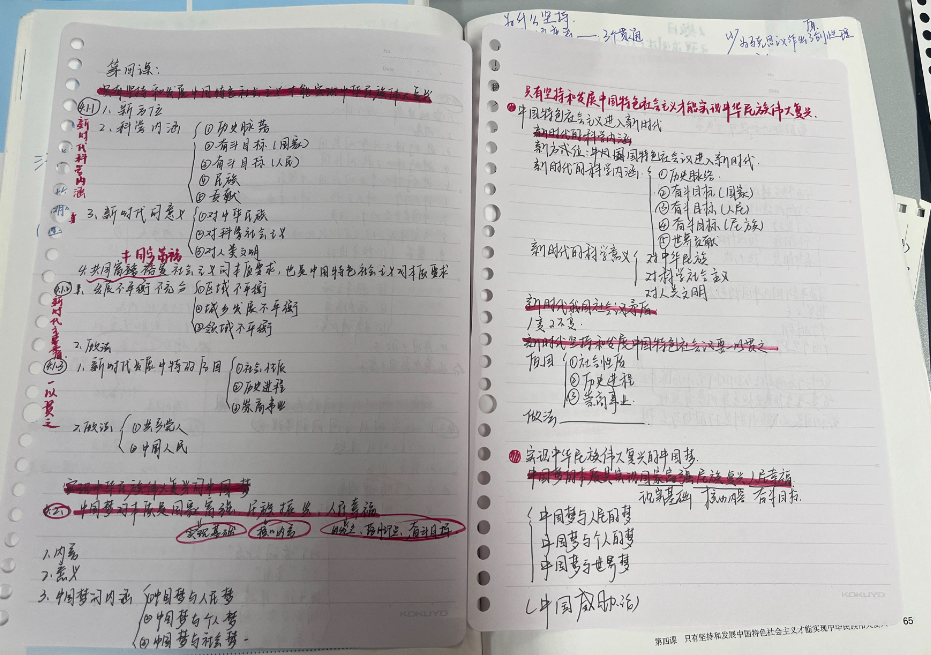 第四课:
只有坚持和发展中国特色社会主义才能实现中华民族伟大复兴
4.1.1
1. 新方位
新时代科学内涵
2. 科学内涵
①历史脉络
②奋斗目标(国家)
③奋斗目标(人民)
④民族
⑤贡献
3. 新时代的意义
①对中华民族
②对科学社会主义
③对人类文明
共同富裕
4. 共同富裕 是社会主义的本质要求,也是中国特色社会主义的本质要求
新时代主要矛盾
1. 发展不平衡不充分
①区域不平衡
②城乡发展不平衡
③领域不平衡
2. 做法
4.1.3
一以贯之
1. 新时代发展中特的原因
①社会性质
②历史进程
③党的事业
2. 做法
①共产党人
②中国人民
实现中华民族伟大复兴的中国梦
4.2.1
中国梦的本质是国家富强 民族振兴 人民幸福
实现基础
核心内容
奋斗目标
1. 内容
2. 意义
3. 中国梦的内涵
①中国梦与人民梦
②中国梦与个人梦
③中国梦与社会梦
KOKUYO
为什么坚持
三个贯通
只有坚持和发展中国特色社会主义才能实现中华民族伟大复兴.
中国特色社会主义进入新时代
新时代的科学内涵
新方位: 中国特色社会主义进入新时代.
新时代的科学内涵
①历史脉络
②奋斗目标(国家)
③奋斗目标(人民)
④奋斗目标(民族)
⑤世界贡献
新时代的科学意义
对中华民族
对科学社会主义
对人类文明
新时代我国社会主要矛盾
1变2不变
新时代坚持和发展中国特色社会主义要一以贯之
原因
①社会性质
②历史进程
③党的事业.
做法
实现中华民族伟大复兴的中国梦.
中国梦的本质是实现国家富强 民族复兴 人民幸福
现实基础 核心内容 奋斗目标
中国梦与人民的梦
中国梦与个人的梦
中国梦与世界梦
KOKUYO
第四课 只有坚持和发展中国特色社会主义才能实现中华民族伟大复兴
65